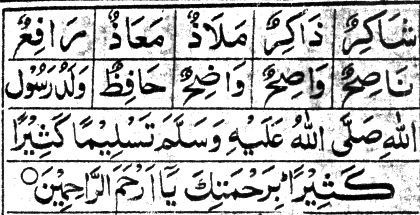 شَاکِرٌ ذَاکِرٌ مَلَاذٌ مَعَاذٌ رَافِعٌ
نَاصِحٌ وَاصِحٌ وَاضِحٌ حَافِظٌ وَلَدُ رَسُوْل
اللّٰہِ صَلَّی اللّٰہُ عَلَیْہِ وَسَلَّمَ تَسْلِیْمًا کَثِیْرًا
کَثِیْرًا بِرَحْمَتِكَ یَا اَرْحَمَ الرَّاحِمِیْنَ